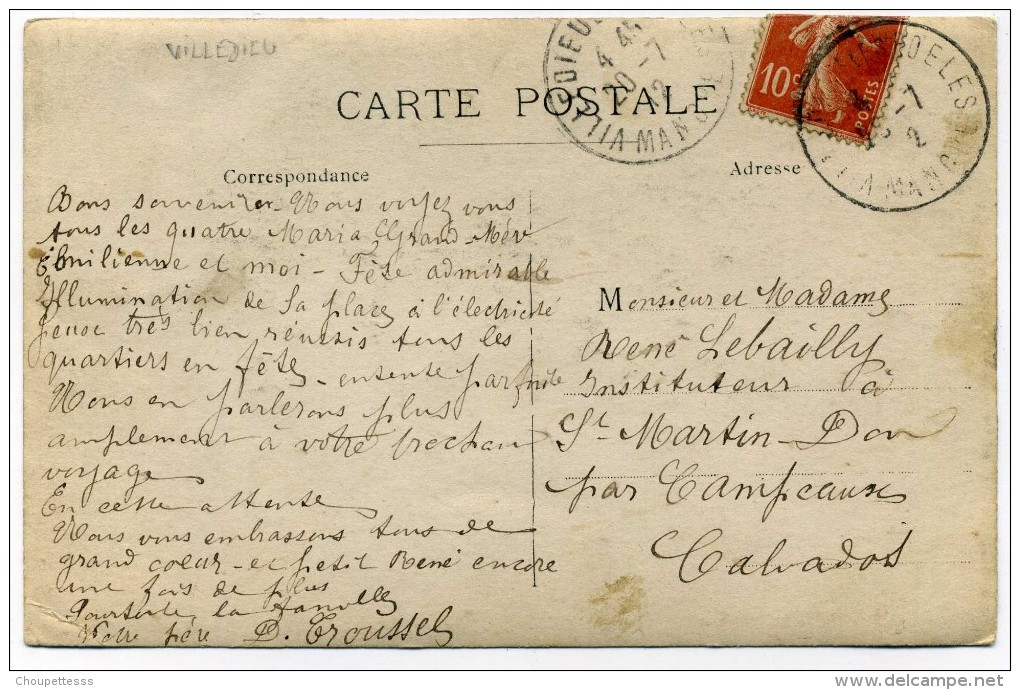 VILLEDIEU
CARTE POSTALE
VILLEDIEU MANCHE
4 45
20-7
10c
POSTES
DELES
MANCHE
Correspondance
Adresse
Bons souvenirs. Nous voyez vous
tous les quatre Maria Grand-Mère
Emilienne et moi - Fête admirable
Illumination de la place à l'électricité
très bien réussis tous les
quartiers en fête, entente parfaite
Nous en parlerons plus
amplement à votre prochain
voyage
En cette attente
Nous vous embrassons tous de
grand coeur - et petit René encore
une fois de plus
Pour toute la famille
Votre père D. Troussel
Monsieur et Madame
René Lebailly
Instituteur à
St Martin-Don
par Campeaux
Calvados
© Choupettesss
delcampe.net